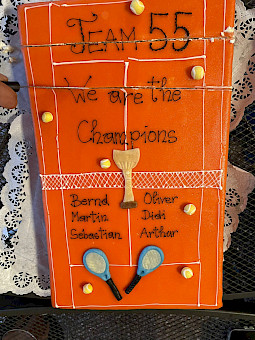 TEAM 55
We are the
Champions
Bernd Oliver
Martin Didi
Sebastian Arthar